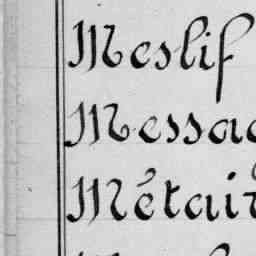 Meslif
Messac
Métair